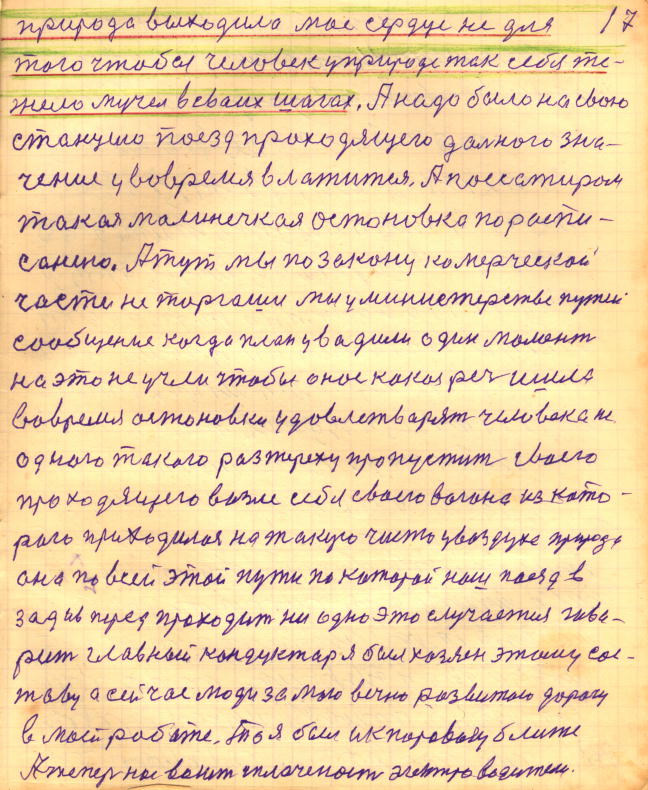 природа выходила мое сердце не для 17
того чтобы человек у природе так себя тя-
жело мучел в сваих шагах. А надо было на свою
станцыю поезд проходящего далного зна-
чение у вовремя влатится. А поссажиром
такая малинечкая остоновка по распи-
санию. А тут мы по закону комерческой
части не торгаши мы у министерстве путей
сообщение когда план увадили один момент
на это не учли чтобы оное какая реч ишла
вовремя остоновки удовлетварят человека не
одного такого разтереху пропустит своего
проходящего возле себя своего вогона из като-
раго приходилося на такую чисто увоздухе природа
она по всей этой пути по каторой наш поезд в
зад ив перед проходит ни одно это случается гава-
рит главный кондуктар я был хозяен этому сос-
таву а сейчас люди за мою вечно развитою дорогу
в моей работе. То я был и к паровозу ближе
А тепер нас электроводители.